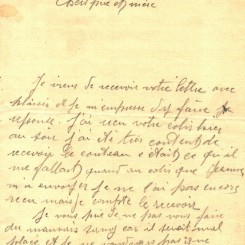 Chers père et mère
Je viens de recevoir votre lettre avec
plaisir et je m'empresse d'y faire
réponse. J'ai reçu votre colis hier
au soir j'ai été très content de
recevoir le couteau c'était ce qu'il
me fallait quand au colis que Jeanne
m'a envoyer je ne l'ai pas encore
reçu mais je compte le recevoir
Je vous prie de ne pas vous faire
du mauvais sang car il serait mal
placé et de ne